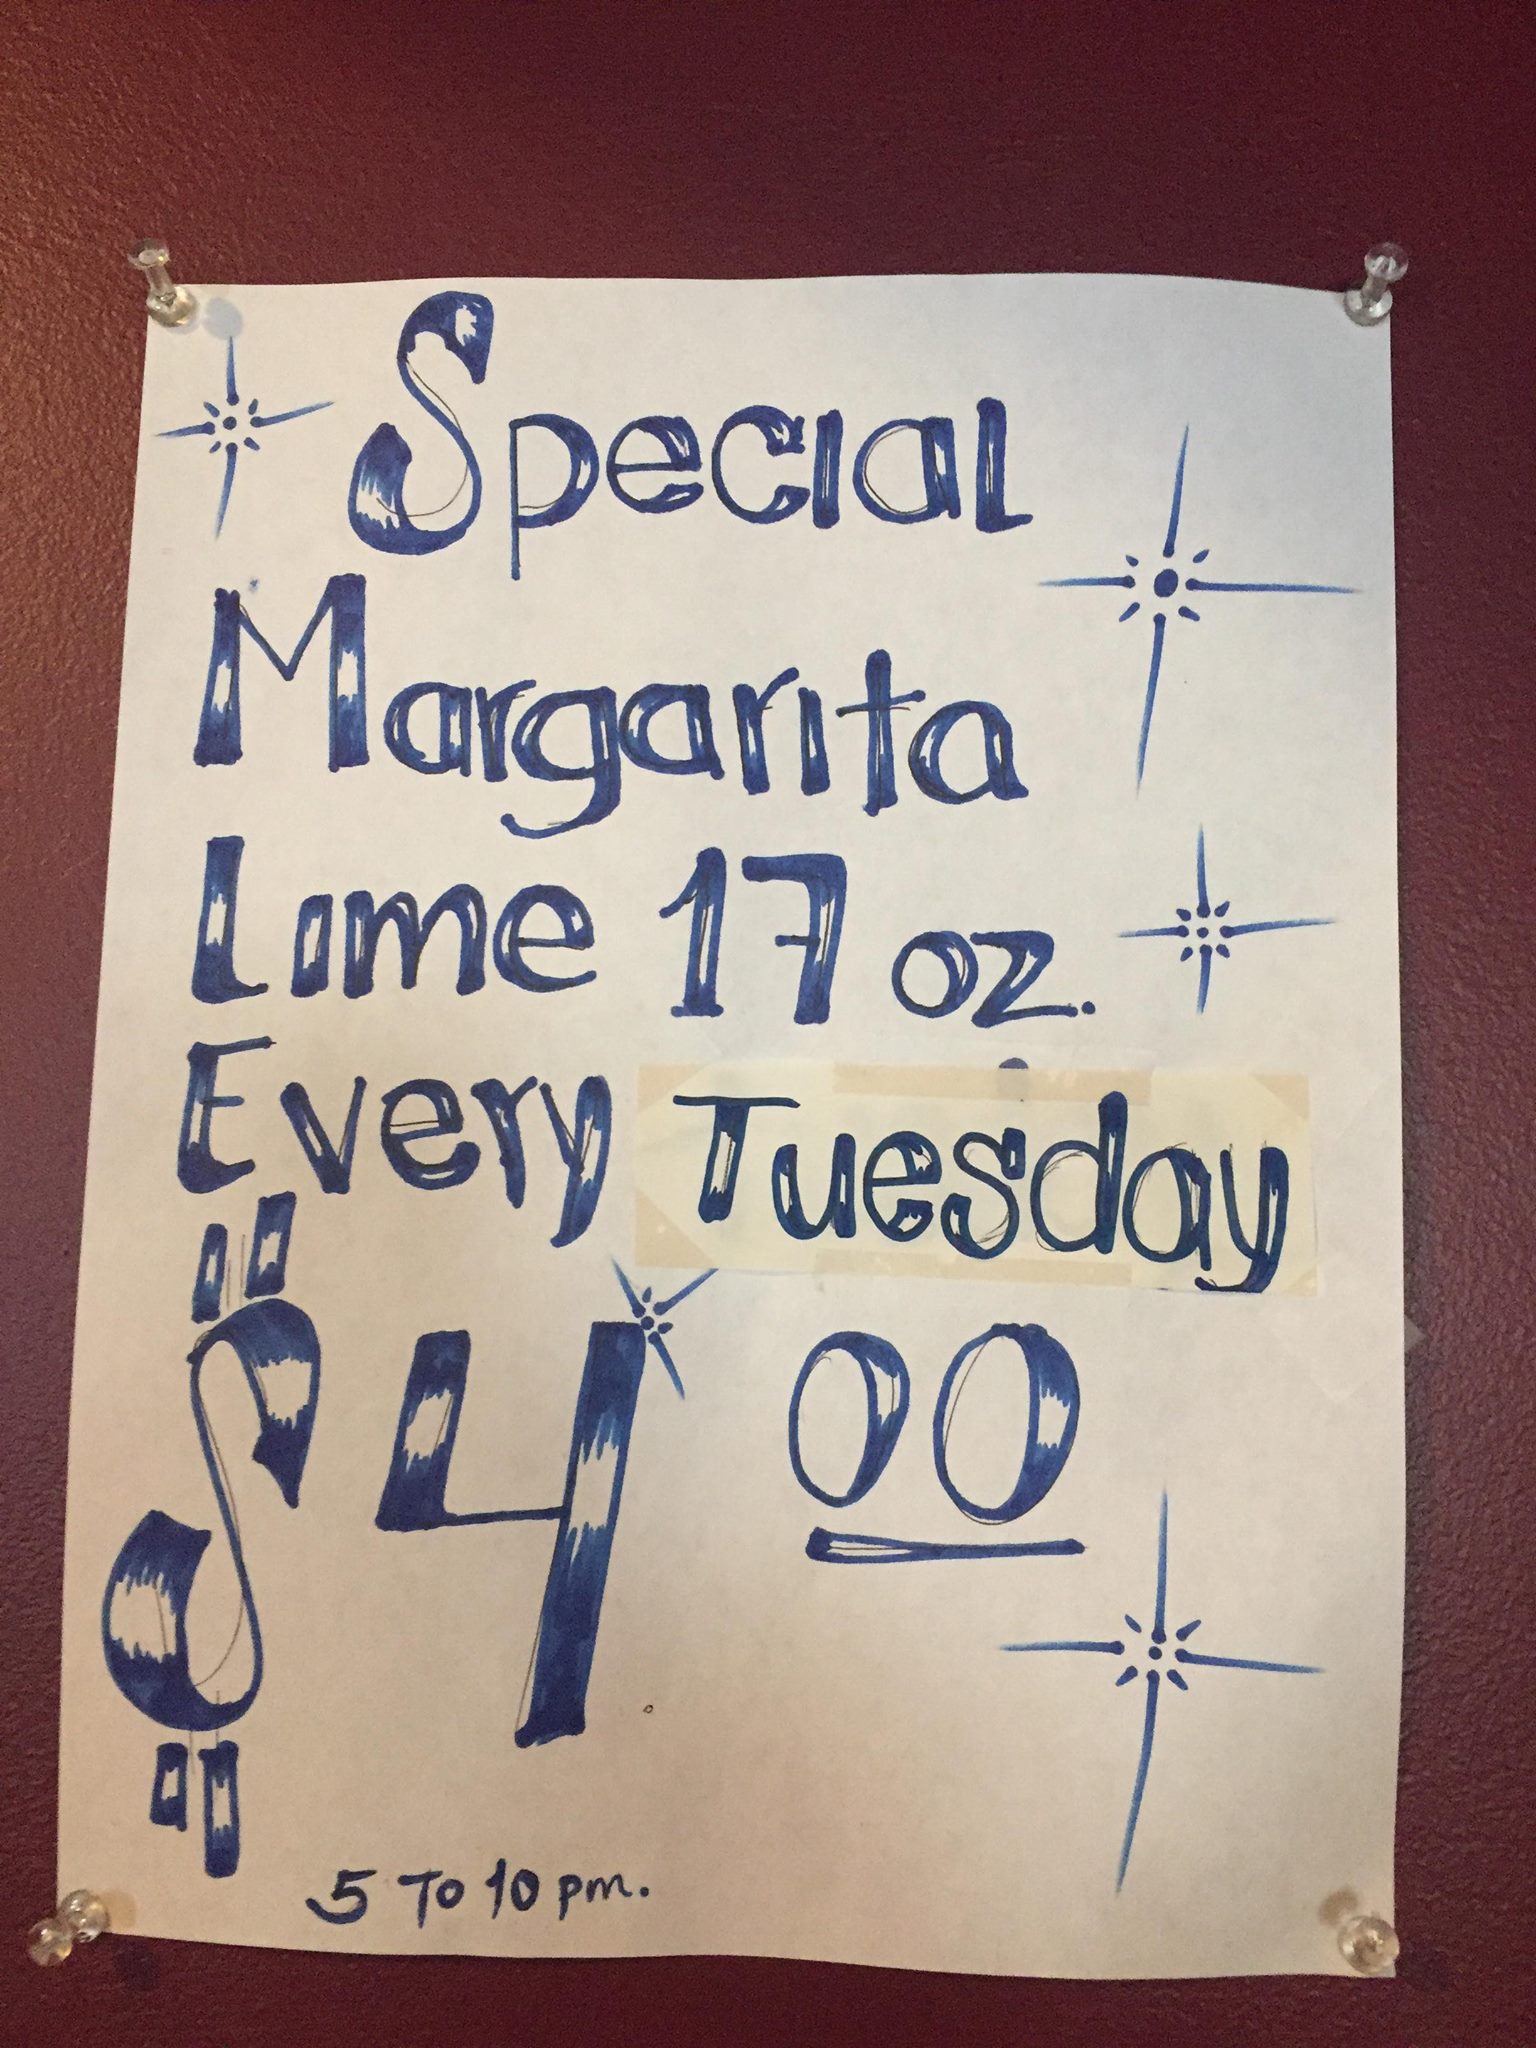 Special
Margarita
Lime 17 oz.
Every Tuesday
$4 00
5 To 10 pm.